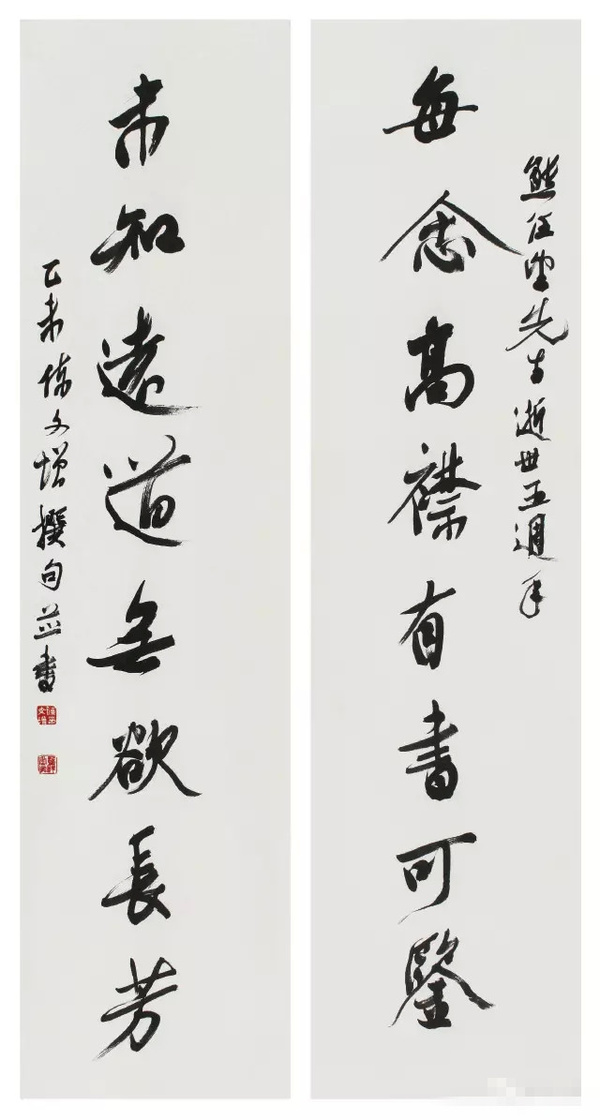 熊任望先生逝世五週年
每念高襟有書可鑒
未知遠道無欲長芳
乙未陳文增撰句並書